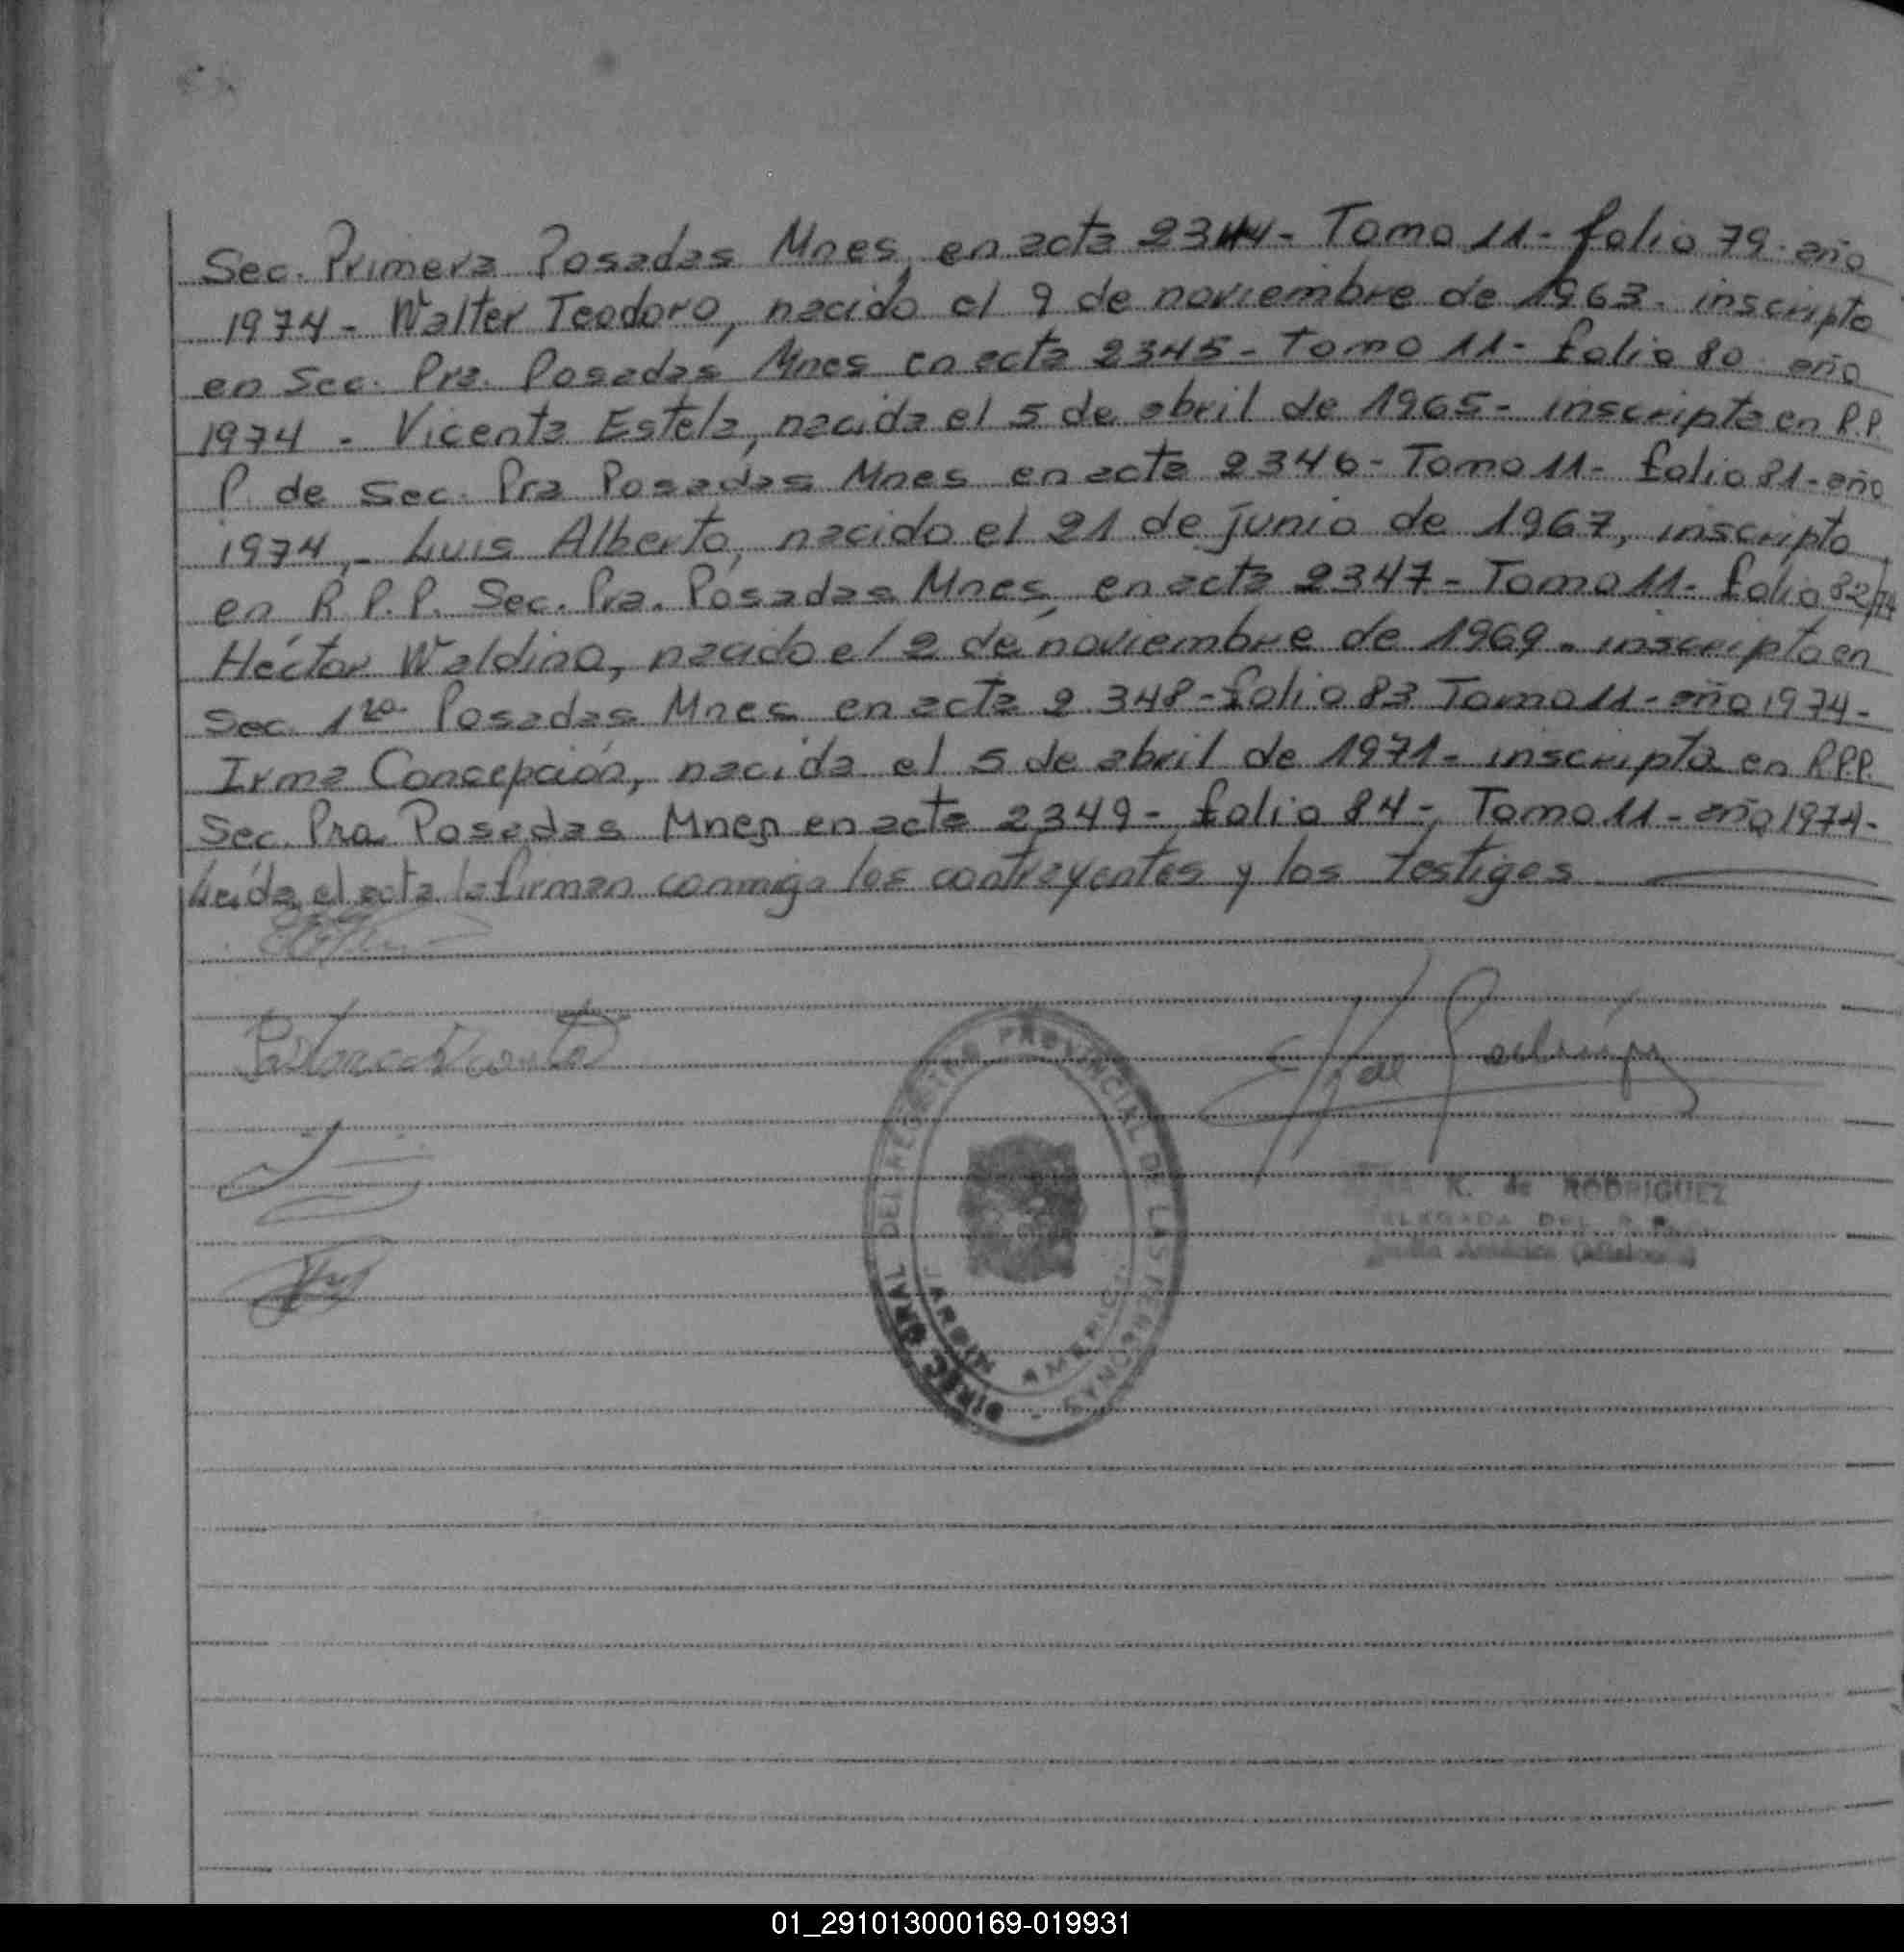 Sec. Primera Posadas Mnes, en acta 2344- Tomo 11- folio 79- año
1974- Walter Teodoro, nacido el 9 de noviembre de 1963- inscripto
en Sec. Pra. Posadas Mnes en acta 2345- Tomo 11- folio 80 año
1974 - Vicenta Estela, nacida el 5 de abril de 1965- inscripta en R.P.
P. de Sec. Pra Posadas Mnes en acta 2346- Tomo 11- folio 81- año
1974,- Luis Alberto, nacido el 21 de junio de 1967, inscripto
en R.P.P. Sec. Pra. Posadas Mnes, en acta 2347- Tomo 11- folio 82/74
Héctor Waldino, nacido el 2 de noviembre de 1969- inscripto en
Sec. 1ra. Posadas Mnes en acta 2.348- folio 83 Tomo 11- año 1974-
Irma Concepción, nacida el 5 de abril de 1971- inscripta en R.P.P.
Sec. Pra. Posadas Mnes en acta 2349- folio 84-, Tomo 11- año 1974-
Leída el acta la firman conmigo los contrayentes y los testigos
de Rodríguez
DIREC. GRAL. DEL REGISTRO PROVINCIAL DE LAS PERSONAS -
JARDIN AMERICA
K. de RODRIGUEZ
DELEGADA DEL R.
Jardín América (Misiones)
01_291013000169-019931